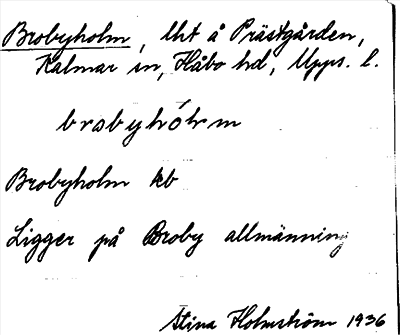 Brobyholm, lht å Prästgården,
Kalmar sn, Håbo hd, Upps. l.
brobyhólm
Brobyholm kb
Ligger på Broby allmänning
Stina Holmström 1936